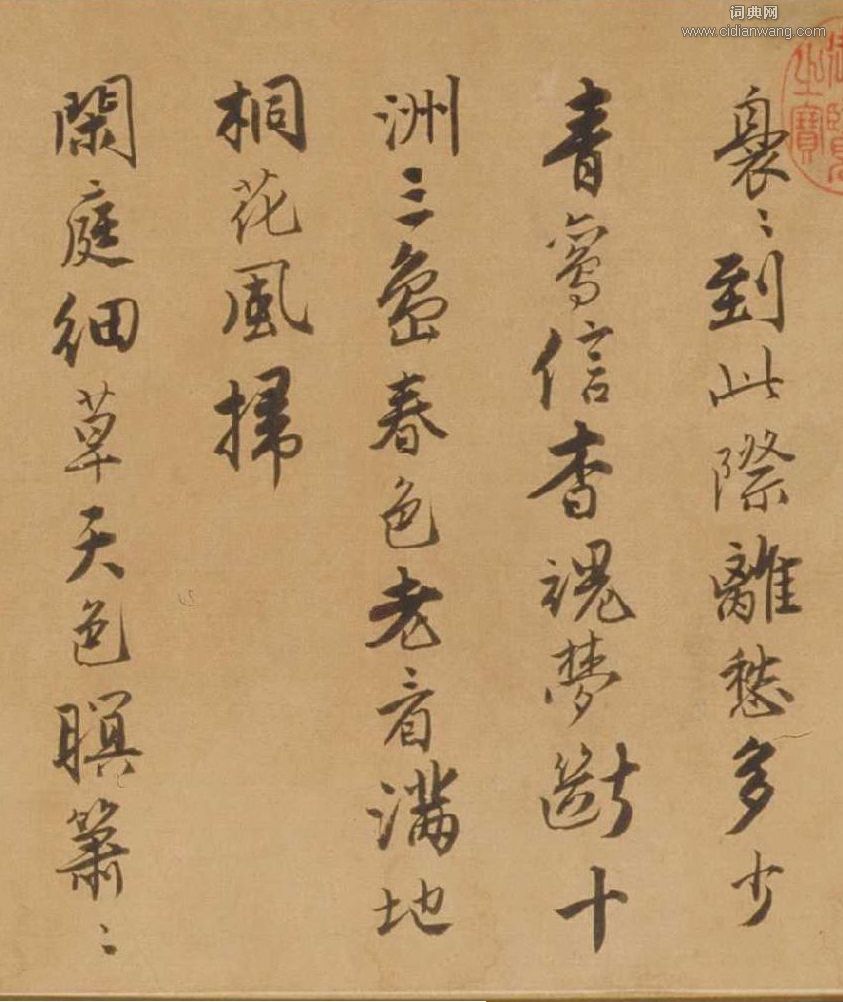 词典网
www.cidianwang.com
裊〻到此際離愁多少
青鸞信杳魂夢斷十
洲三島春色老看滿地
桐花風掃
閑庭細草天色暝簫〻